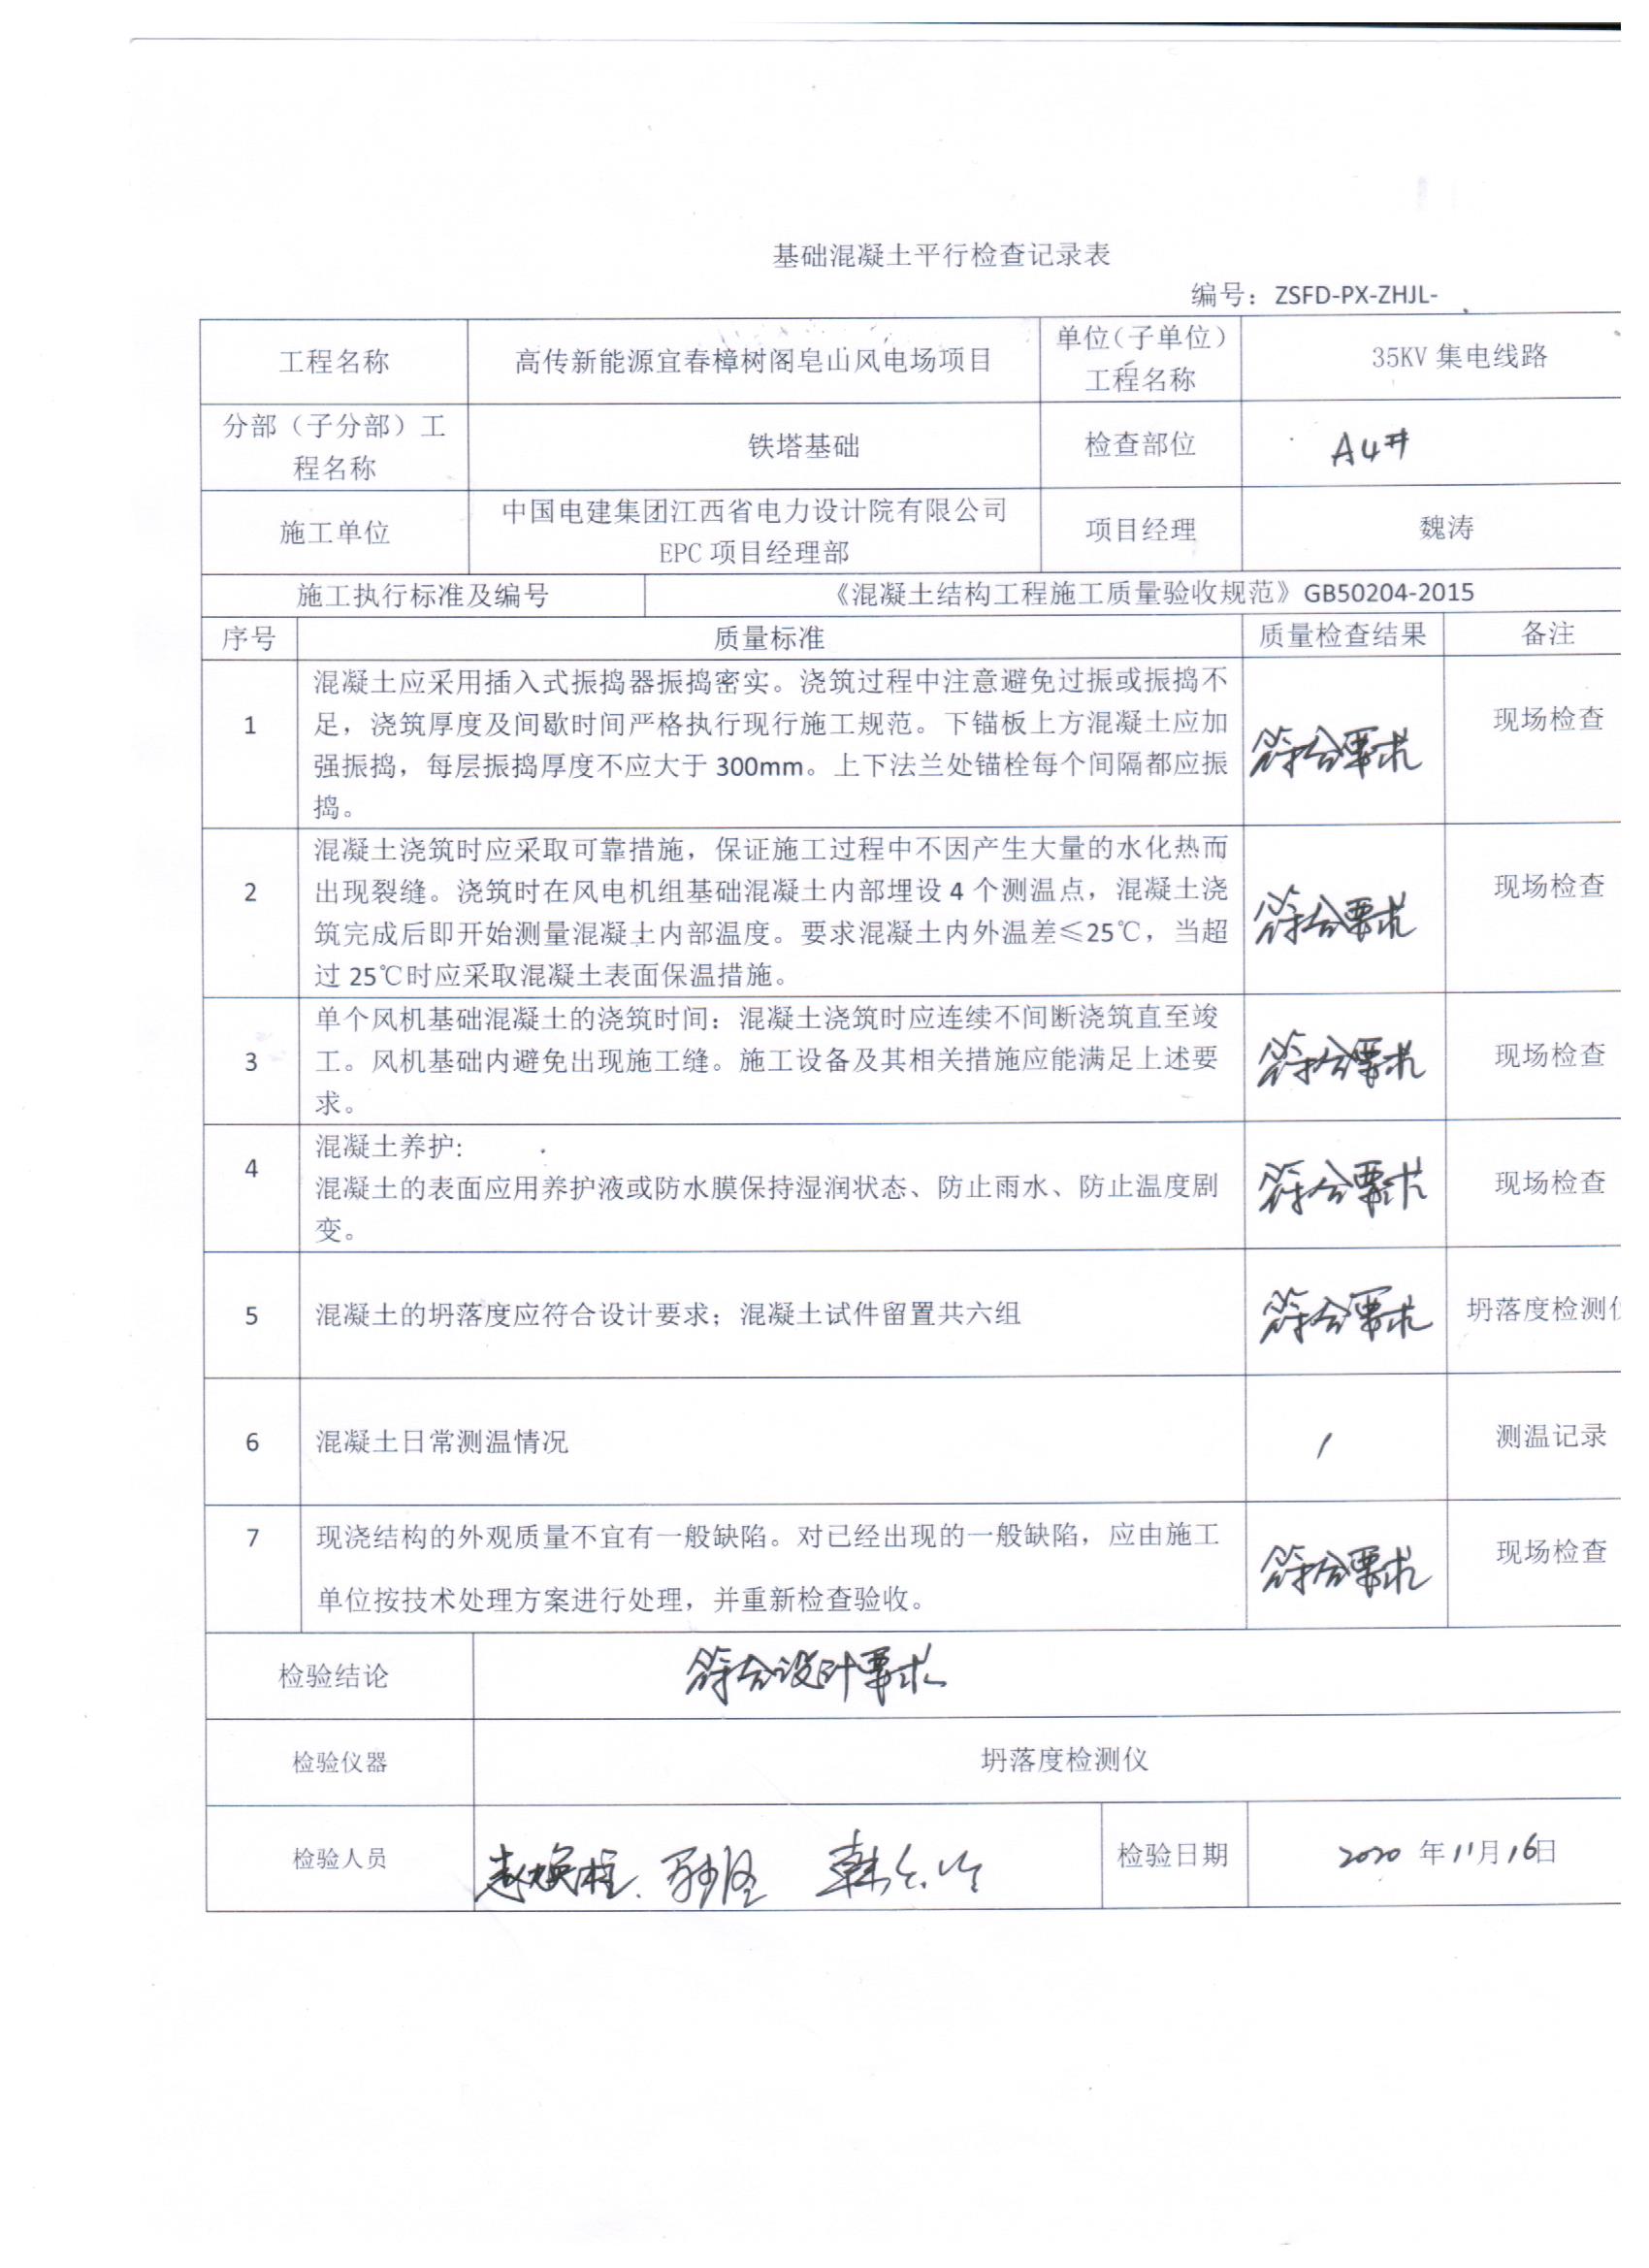 基础混凝土平行检查记录表
编号：ZSFD-PX-ZHJL-
工程名称
高传新能源宜春樟树阁皂山风电场项目
单位（子单位）
工程名称
35KV 集电线路
分部（子分部）工
程名称
铁塔基础
检查部位
A4#
施工单位
中国电建集团江西省电力设计院有限公司
EPC 项目经理部
项目经理
魏涛
施工执行标准及编号
《混凝土结构工程施工质量验收规范》GB50204-2015
序号
质量标准
质量检查结果
备注
1
混凝土应采用插入式振捣器振捣密实。浇筑过程中注意避免过振或振捣不
足，浇筑厚度及间歇时间严格执行现行施工规范。下锚板上方混凝土应加
强振捣，每层振捣厚度不应大于 300mm。上下法兰处锚栓每个间隔都应振
捣。
符合要求
现场检查
2
混凝土浇筑时应采取可靠措施，保证施工过程中不因产生大量的水化热而
出现裂缝。浇筑时在风电机组基础混凝土内部埋设 4 个测温点，混凝土浇
筑完成后即开始测量混凝土内部温度。要求混凝土内外温差≤25℃，当超
过 25℃时应采取混凝土表面保温措施。
符合要求
现场检查
3
单个风机基础混凝土的浇筑时间：混凝土浇筑时应连续不间断浇筑直至竣
工。风机基础内避免出现施工缝。施工设备及其相关措施应能满足上述要
求。
符合要求
现场检查
4
混凝土养护:
混凝土的表面应用养护液或防水膜保持湿润状态、防止雨水、防止温度剧
变。
符合要求
现场检查
5
混凝土的坍落度应符合设计要求；混凝土试件留置共六组
符合要求
坍落度检测
6
混凝土日常测温情况
/
测温记录
7
现浇结构的外观质量不宜有一般缺陷。对已经出现的一般缺陷，应由施工
单位按技术处理方案进行处理，并重新检查验收。
符合要求
现场检查
检验结论
符合设计要求
检验仪器
坍落度检测仪
检验人员
赵焕柱
检验日期
2020 年11月16日